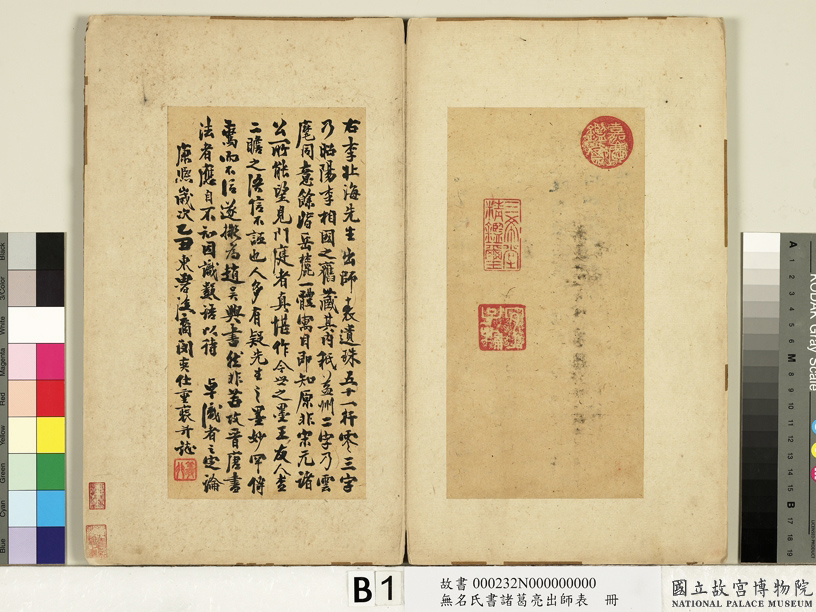 嘉慶鑑賞
三希堂精鑑璽
宜子孫
右李北海先生出師表遺珠五十一行零三字
乃昭陽李相國之舊藏其內祇益州二字乃雲
麾同意餘皆岳麓一體寓目即知原非宋元諸
公所能望見門庭者真堪作今世之墨王友人查
二瞻之語信不誣也人多有疑先生之墨妙罕傳
焉而不信遂擬為趙吳興書然非若故晉唐書
法者應自不知因識數語以待 卓識者之定論
康熙歲次乙丑東魯漁商閔奕仕重裝并誌
B1
故書 000232N000000000
無名氏書諸葛亮出師表 冊
國立故宮博物院
NATIONAL PALACE MUSEUM
KODAK Gray Scale
A 1 2 3 4 5 6 M 8 9 10 11 12 13 14 15 B 17 18 19
Black
3/Color
White
Magenta
Red
Yellow
Green
Cyan
Blue